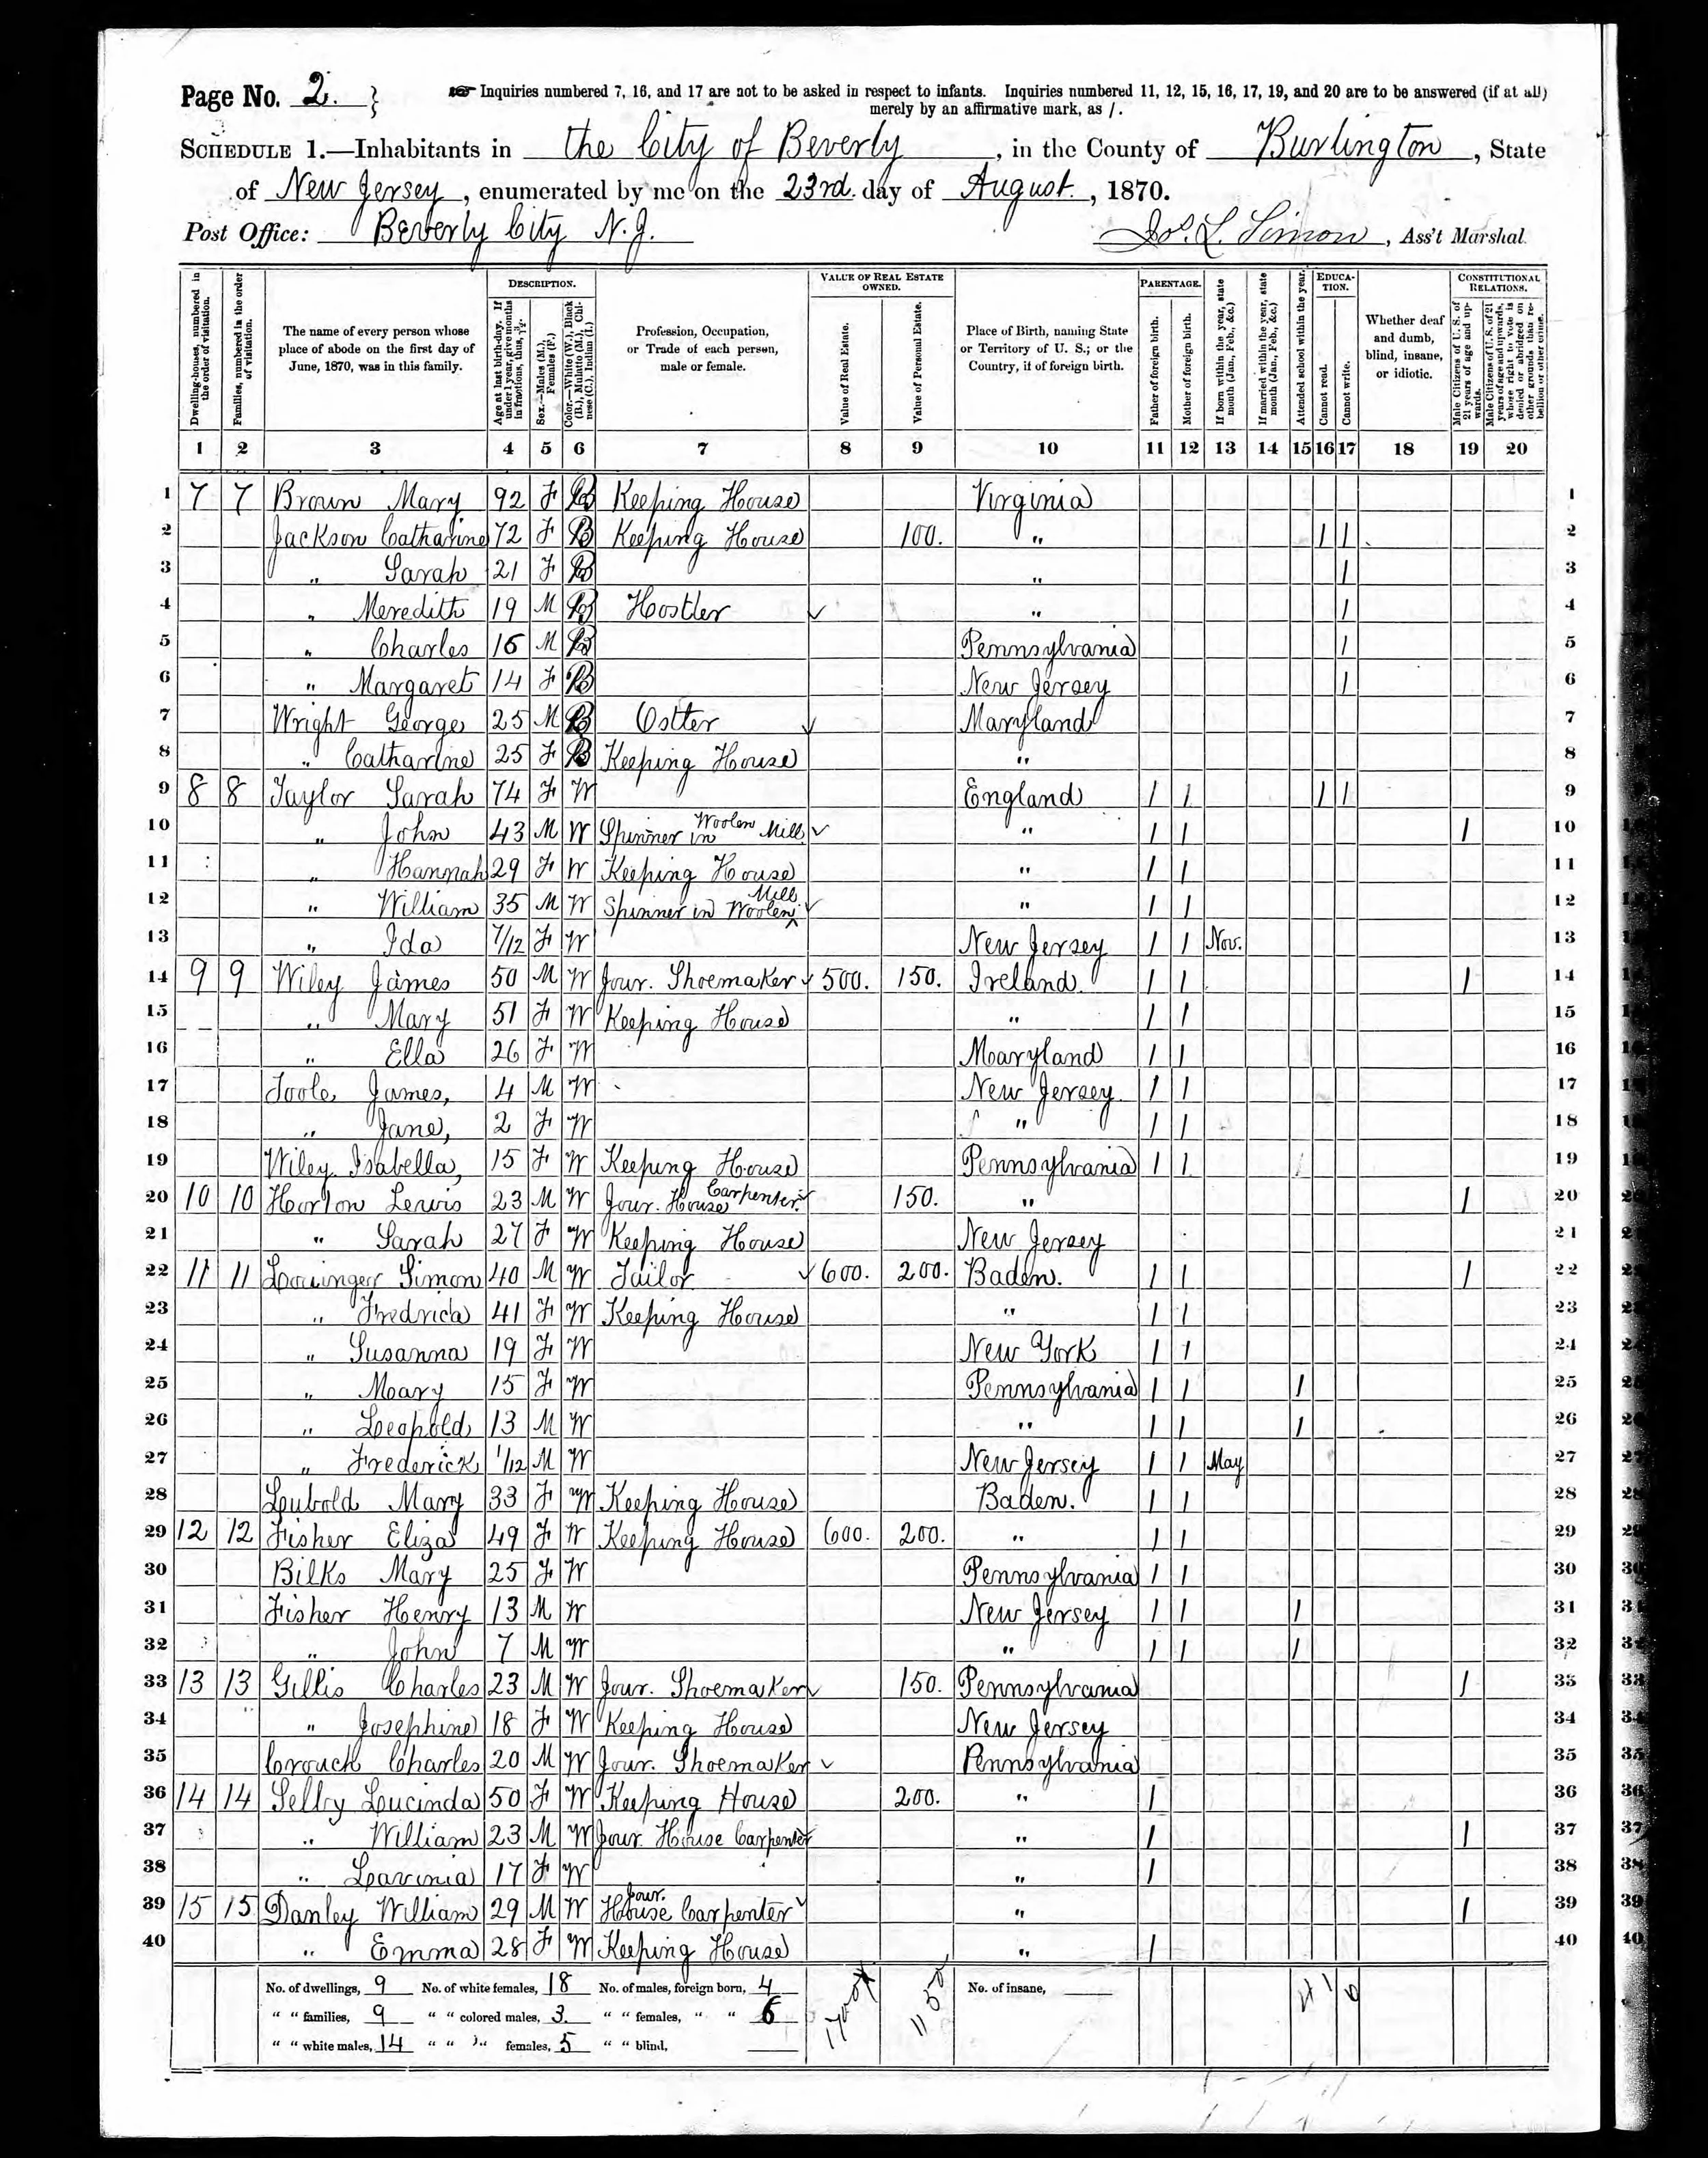 Page No. 2. } Inquiries numbered 7, 16, and 17 are not to be asked in respect to infants. Inquiries numbered 11, 12, 15, 16, 17, 19, and 20 are to be answered (if at all)
merely by an affirmative mark, as /.
SCHEDULE 1.—Inhabitants in the City of Beverly, in the County of Burlington, State
of New Jersey, enumerated by me on the 23rd. day of August., 1870.
Post Office: Beverly City N.J. Jos. L. Simon, Ass't Marshal.
Dwelling-houses, numbered in the order of visitation. Families, numbered in the order of visitation. The name of every person whose place of abode on the first day of June, 1870, was in this family. DESCRIPTION. Age at last birth-day. If under 1 year, give months in fractions, thus, 3/12. Sex.—Males (M.), Females (F.) Color.—White (W.), Black (B.), Mulatto (M.), Chinese (C.), Indian (I.) Profession, Occupation, or Trade of each person, male or female. VALUE OF REAL ESTATE OWNED. Value of Real Estate. Value of Personal Estate. Place of Birth, naming State or Territory of U. S.; or the Country, if of foreign birth. PARENTAGE. Father of foreign birth. Mother of foreign birth. If born within the year, state month (Jan., Feb., &c.) If married within the year, state month (Jan., Feb., &c.) Attended school within the year. EDUCATION. Cannot read. Cannot write. Whether deaf and dumb, blind, insane, or idiotic. CONSTITUTIONAL RELATIONS. Male Citizens of U. S. of 21 years of age and upwards. Male Citizens of U. S. of 21 years of age and upwards, whose right to vote is denied or abridged on other grounds than rebellion or other crime.
1 2 3 4 5 6 7 8 9 10 11 12 13 14 15 16 17 18 19 20
1 7 7 Brown Mary 92 F B Keeping House Virginia 1
2 Jackson Catharine 72 F B Keeping House 100. " / / 2
3 " Sarah 21 F B " / 3
4 " Meredith 19 M B Hostler ✓ " / 4
5 " Charles 16 M B Pennsylvania / 5
6 " Margaret 14 F B New Jersey / 6
7 Wright George 25 M B Ostler ✓ Maryland 7
8 " Catharine 25 F B Keeping House " 8
9 8 8 Taylor Sarah 74 F W England / / / / 9
10 " John 43 M W Spinner in Woolen Mill ✓ " / / / 10
11 " Hannah 29 F W Keeping House " / / 11
12 " William 35 M W Spinner in Woolen Mill ✓ " / / 12
13 " Ida 7/12 F W New Jersey / / Nov. 13
14 9 9 Wiley James 50 M W Jour. Shoemaker ✓ 500. 150. Ireland / / / 14
15 " Mary 51 F W Keeping House " / / 15
16 " Ella 26 F W Maryland / / 16
17 Toole James, 4 M W New Jersey / / 17
18 " Jane, 2 F W " / / 18
19 Wiley Isabella, 15 F W Keeping House Pennsylvania / / 19
20 10 10 Horton Lewis 23 M W Jour. House Carpenter ✓ 150. " / 20
21 " Sarah 27 F W Keeping House New Jersey 21
22 11 11 Simon 40 M W Tailor ✓ 600. 200. Baden. / / / 22
23 " Fredrica 41 F W Keeping House " / / 23
24 " Susanna 19 F W New York / / 24
25 " Mary 15 F W Pennsylvania / / / 25
26 " Leopold 13 M W " / / / 26
27 " Frederick 1/12 M W New Jersey / / May 27
28 Leubold Mary 33 F W Keeping House Baden. / / 28
29 12 12 Fisher Eliza 49 F W Keeping House 600. 200. " / / 29
30 Bilks Mary 25 F W Pennsylvania / / 30
31 Fisher Henry 13 M W New Jersey / / / 31
32 " John 7 M W " / / / 32
33 13 13 Gillis Charles 23 M W Jour. Shoemaker ✓ 150. Pennsylvania / 33
34 " Josephine 18 F W Keeping House New Jersey 34
35 Crouch Charles 20 M W Jour. Shoemaker ✓ Pennsylvania 35
36 14 14 Selby Lucinda 50 F W Keeping House 200. " / 36
37 " William 23 M W Jour. House Carpenter " / / 37
38 " Lavinia 17 F W " / 38
39 15 15 Danley William 29 M W Jour. House Carpenter ✓ " / 39
40 " Emma 28 F W Keeping House " / 40
No. of dwellings, 9 No. of white females, 18 No. of males, foreign born, 4 No. of insane,
" " families, 9 " " colored males, 3. " " females, " " 6 1700 1150
" " white males, 14 " " " females, 5 " " blind,